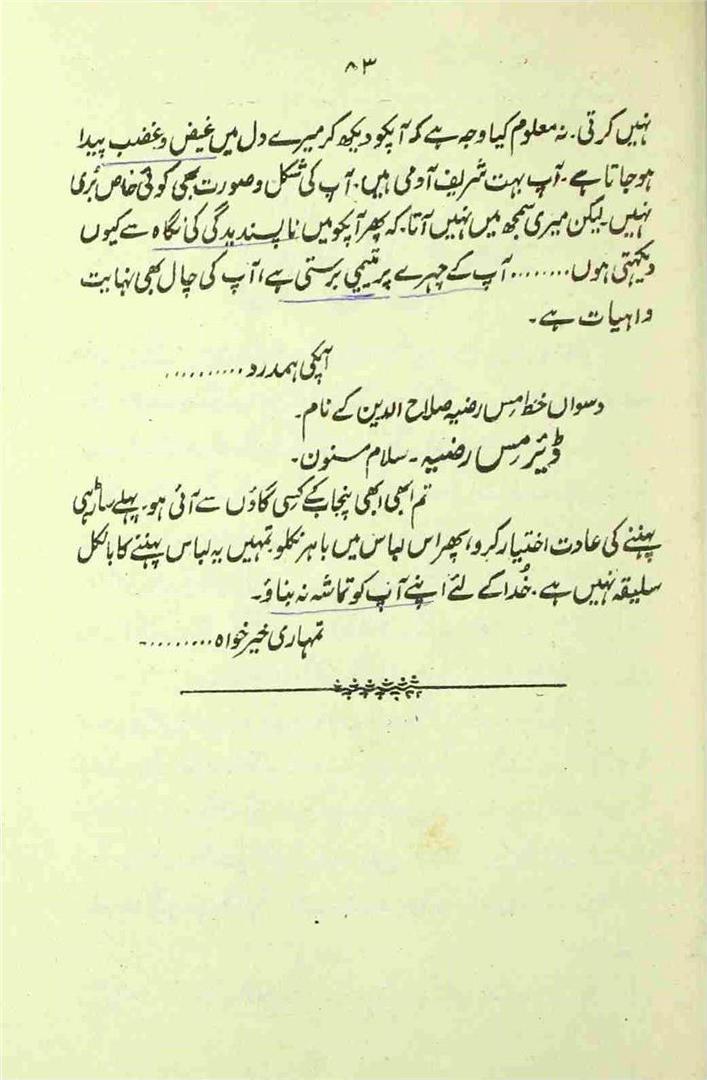 ۸۳
نہیں کرتی۔ نہ معلوم کیا وجہ ہے کہ آپکو دیکھ کر میرے دل میں غیض و غضب پیدا
ہو جاتا ہے۔ آپ بہت شریف آدمی ہیں۔ آپ کی شکل و صورت بھی کوئی خاص بُری
نہیں۔ لیکن میری سمجھ میں نہیں آتا۔ کہ پھر آپکو میں ناپسندیدگی کی نگاہ سے کیوں
دیکھتی ہوں ........ آپ کے چہرے پر یتیمی برستی ہے، آپ کی چال بھی نہایت
واہیات ہے۔
آپکی ہمدرد ..........
دسواں خط مس رضیہ صلاح الدین کے نام۔
ڈیئر مس رضیہ۔ سلام مسنون۔
تم ابھی ابھی پنجاب کے کسی گاؤں سے آئی ہو۔ پہلے ساڑہی
پہننے کی عادت اختیار کرو، پھر اس لباس میں باہر نکلو۔ تمہیں یہ لباس پہننے کا بالکل
سلیقہ نہیں ہے۔ خُدا کے لئے اپنے آپ کو تماشہ نہ بناؤ۔
تمہاری خیر خواہ .........